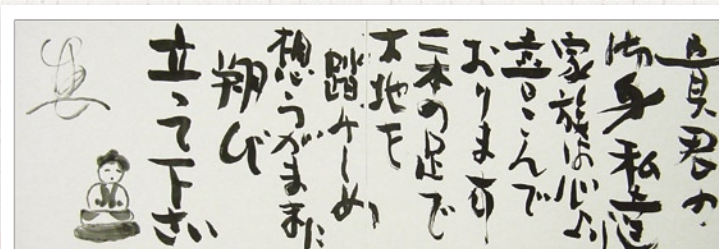 貴君の
御身私達
家族は心より
喜こんで
おります
二本の足で
大地を
踏みしめ
想うがままに
翔び
立って下さい